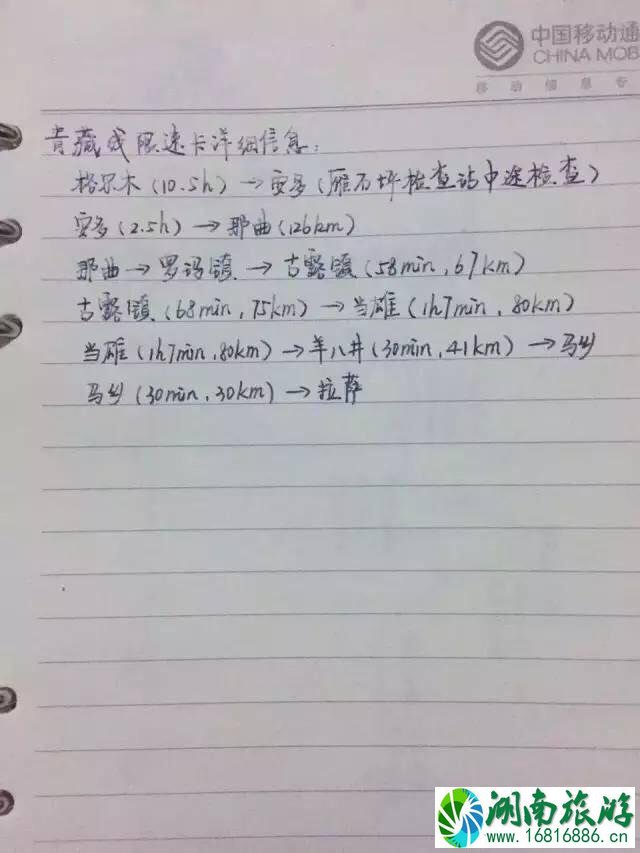 中国移动通
CHINA MOB
移动信息专
青藏线限速卡详细信息：
格尔木(10.5h)→安多(雁石坪检查站中途检查)
安多(2.5h)→那曲(126km)
那曲→罗玛镇→古露镇(58min,67km)
古露镇(68min,75km)→当雄(1h7min,80km)
当雄(1h7min,80km)→羊八井(30min,41km)→马乡
马乡(30min,30km)→拉萨
湖南旅游
www.16816886.cn